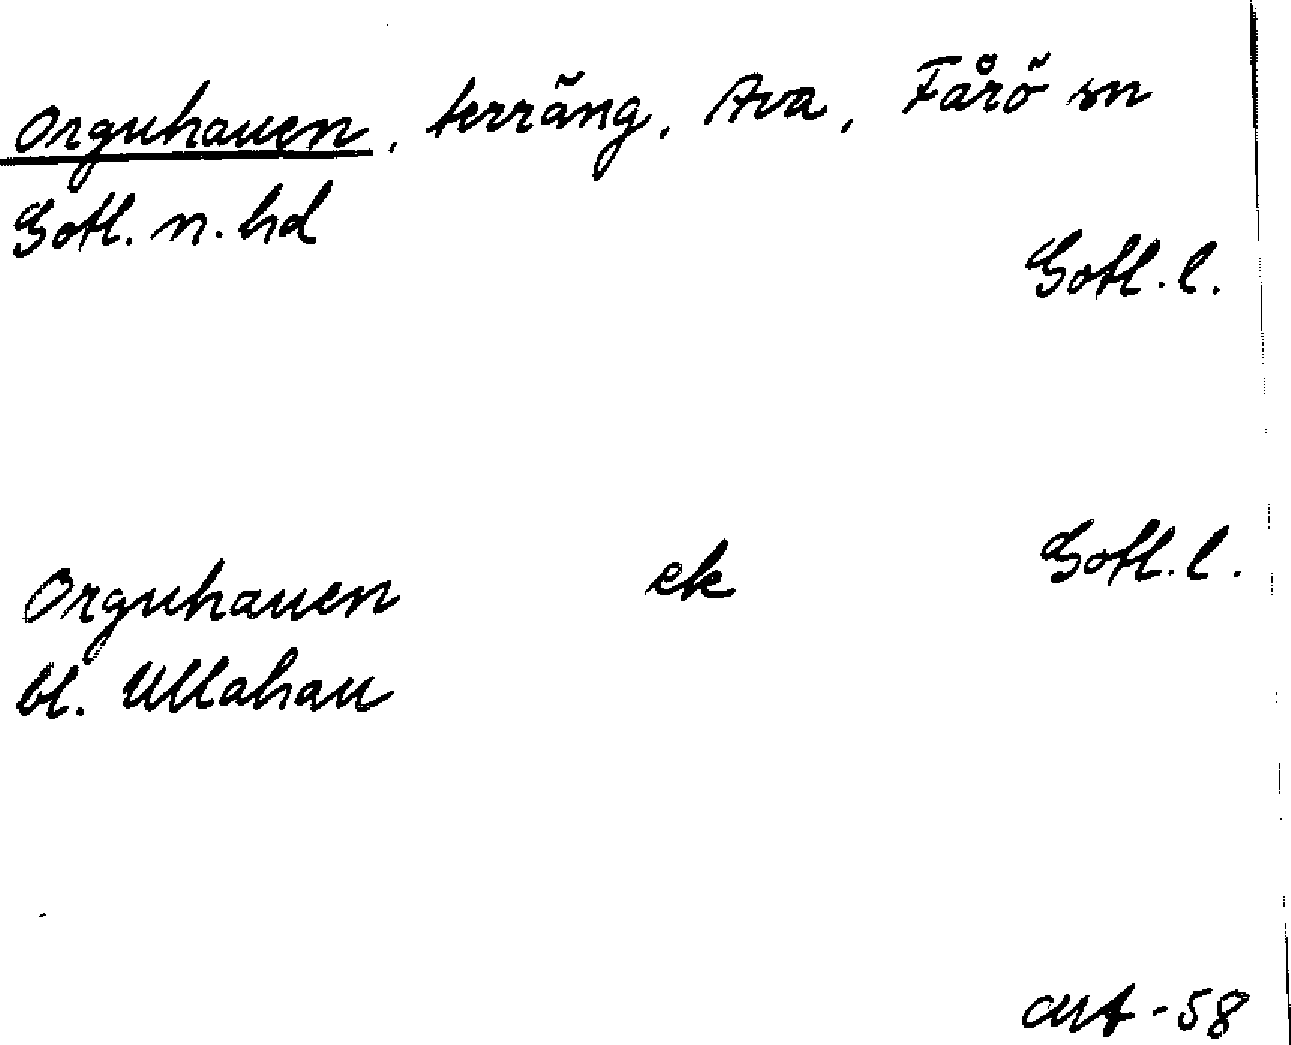 Orguhauen, terräng, Ava, Fårö sn
Gotl. n. hd
Gotl. l.
Orguhauen ek Gotl. l.
bl. Ullahau
-58